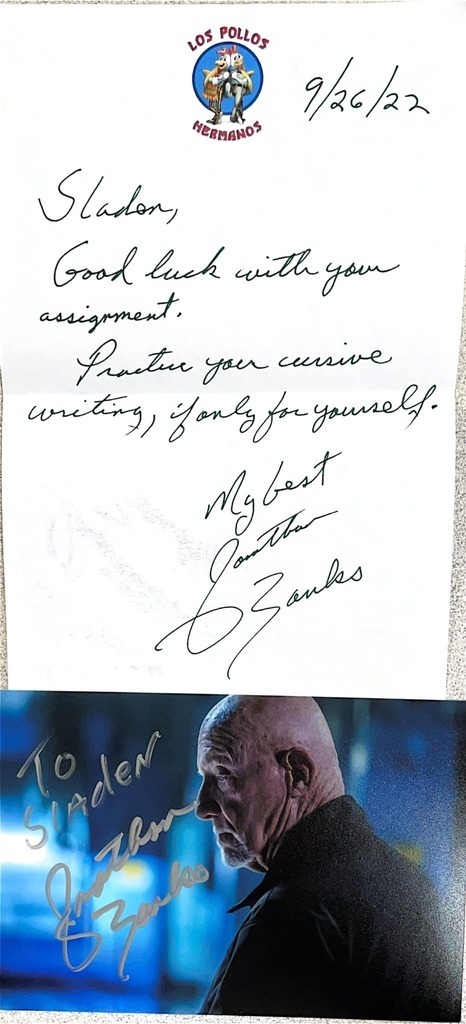 LOS POLLOS
HERMANOS
9/26/22
Sladen,
Good luck with your
assignment.
Practice your cursive
writing, if only for yourself.
My best
Jonathan
Banks
TO
SLADEN
Jonathan
Banks